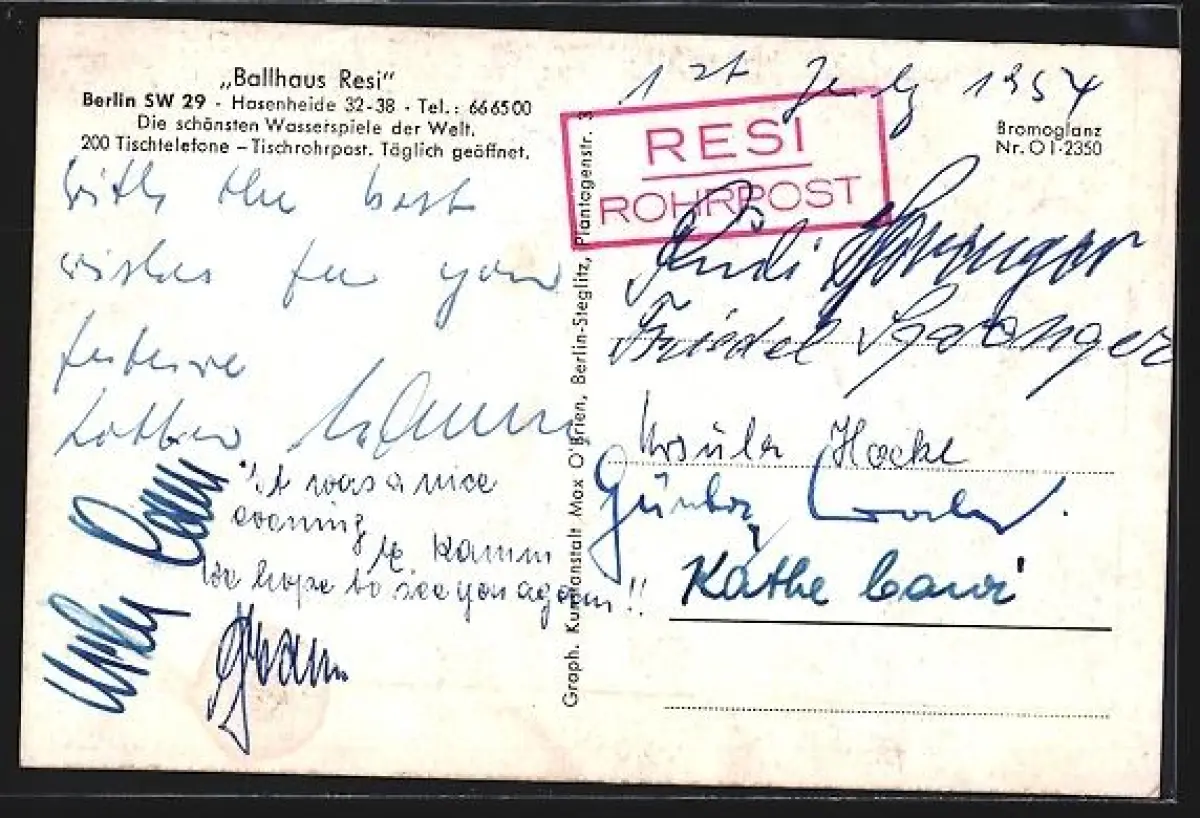 „Ballhaus Resi“
Berlin SW 29 - Hasenheide 32-38 - Tel.: 66 65 00
Die schönsten Wasserspiele der Welt.
200 Tischtelefone – Tischrohrpost. Täglich geöffnet.
with the best
wishes for your
future
Lothar
It was a nice
evening
Kamm
We hope to see you again!!
Graph. Kunstanstalt Max O'Brien, Berlin-Steglitz, Plantagenstr. 3
1st July 1954
RESI
ROHRPOST
Bromoglanz
Nr. O I-2350
Rudi
Friedel
Ursula Hacke
Günter
Käthe